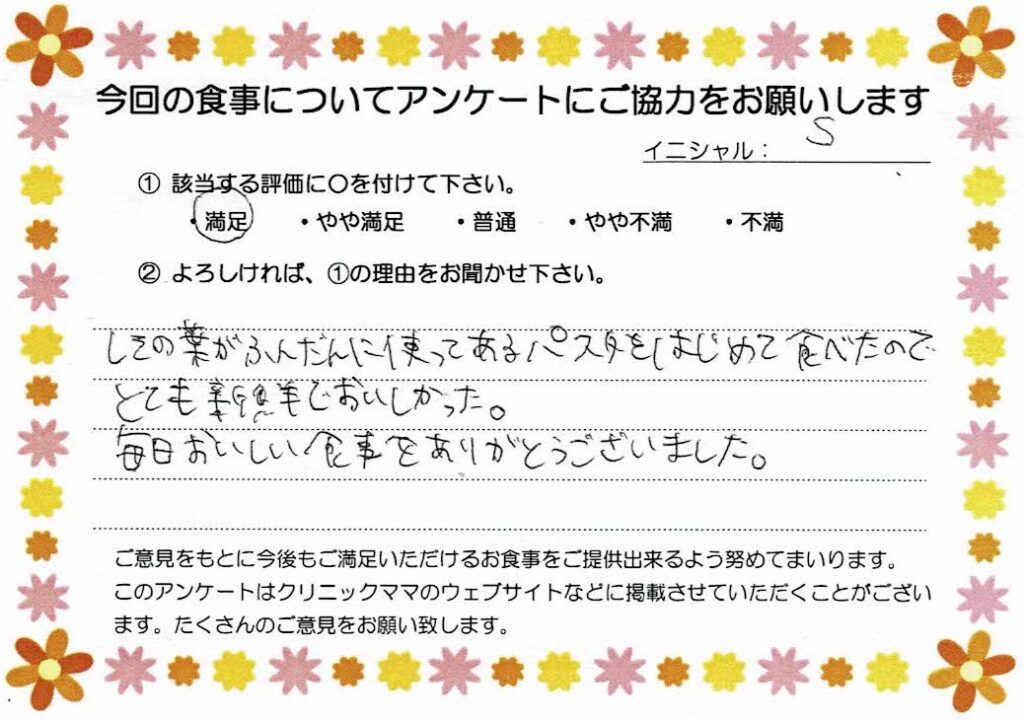 今回の食事についてアンケートにご協力をお願いします
イニシャル： S
① 該当する評価に〇を付けて下さい。
・満足 ・やや満足 ・普通 ・やや不満 ・不満
② よろしければ、①の理由をお聞かせ下さい。
しその葉がふんだんに使ってあるパスタをはじめて食べたので
とても新鮮でおいしかった。
毎日おいしい食事をありがとうございました。
ご意見をもとに今後もご満足いただけるお食事をご提供出来るよう努めてまいります。
このアンケートはクリニックママのウェブサイトなどに掲載させていただくことがござい
ます。たくさんのご意見をお願い致します。